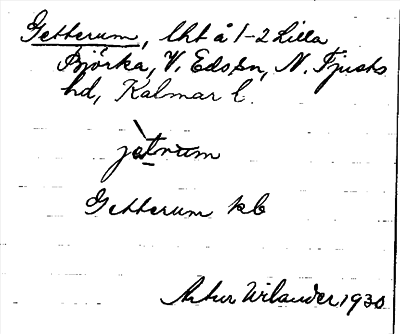 Getterum, lht å 1-2 Lilla
Björka, V. Eds sn, N. Tjusts
hd, Kalmar l.
jàtrum
Getterum kb
Artur Wilander 1930